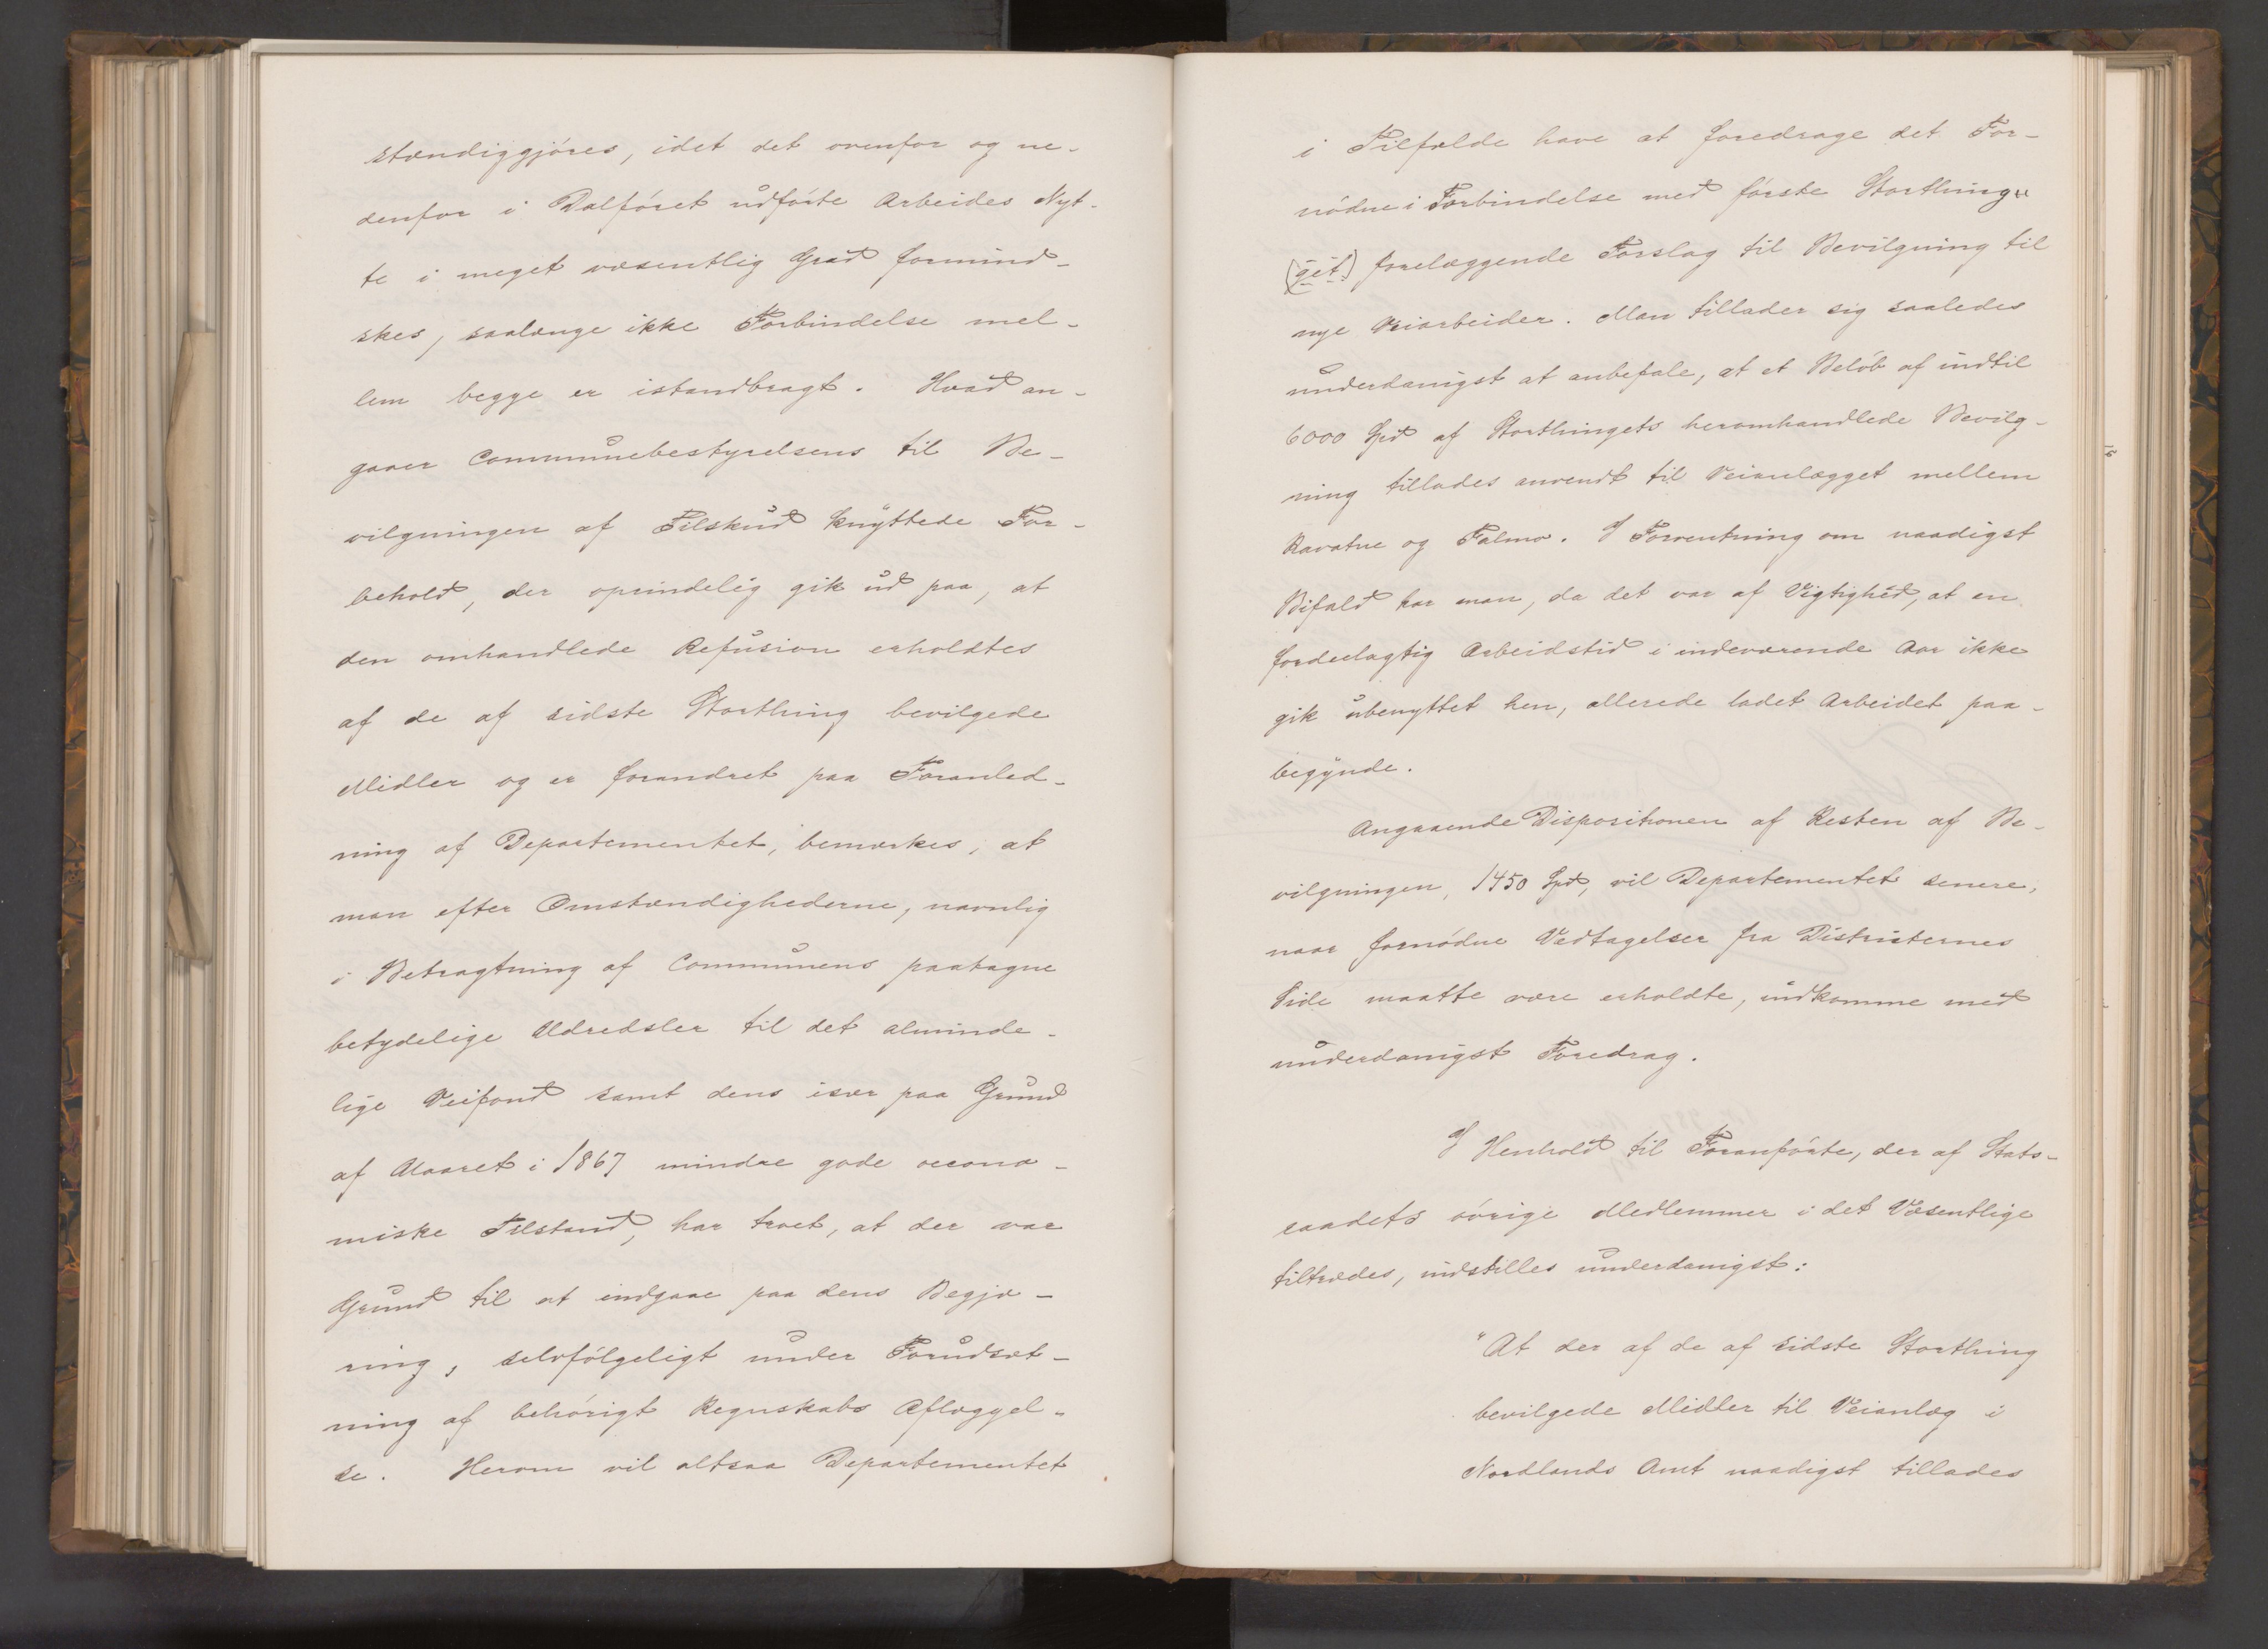 stændiggjøres, idet det ovenfor og ne-
denfor i Dalføret udførte Arbeides Nyt-
te i meget væsentlig Grad formind-
skes, saalænge ikke Forbindelse mel-
lem begge er istandbragt. Hvad an-
gaaer Communebestyrelsens til Be-
vilgningen af Tilskud knyttede For-
behold, der oprindelig gik ud paa, at
den omhandlede Refusion erholdtes
af de af sidste Storthing bevilgede
Midler og er forandret paa Foranled-
ning af Departementet, bemærkes, at
man efter Omstændighederne, navnlig
i Betragtning af Communens paatagne
betydelige Udredsler til det alminde-
lige Veifond samt dens især paa Grund
af Uaaret i 1867 mindre gode oecono-
miske Tilstand, har troet, at der var
Grund til at indgaae paa dens Begjæ-
ring, selvfølgeligt under Forudsæt-
ning af behørigt Regnskabs Aflæggel-
se. Herom vil altsaa Departementet
i Tilfælde have at foredrage det For-
nødne i Forbindelse med første Storthing
(get) forelæggende Forslag til Bevilgning til
nye Veiarbeider. Man tillader sig saaledes
underdanigst at anbefale, at et Beløb af indtil
6000 Spd af Storthingets heromhandlede Bevilg-
ning tillades anvendt til Veianlægget mellem
Ravatne og Falmo. I Forventning om naadigst
Bifald har man, da det var af Vigtighed, at en
fordeelagtig Arbeidstid i indeværende Aar ikke
gik ubenyttet hen, allerede ladet Arbeidet paa-
begynde.
Angaaende Dispositionen af Resten af Be-
vilgningen, 1450 Spd, vil Departementet senere,
naar fornødne Vedtagelser fra Districternes
Side maatte være erholdte, indkomme med
underdanigst Foredrag.
I Henhold til Foranførte, der af Stats-
raadets øvrige Medlemmer i det Væsentlige
tiltrædes, indstilles underdanigst:
"At der af de af sidste Storthing
bevilgede Midler til Veianlæg i
Nordlands Amt naadigst tillades